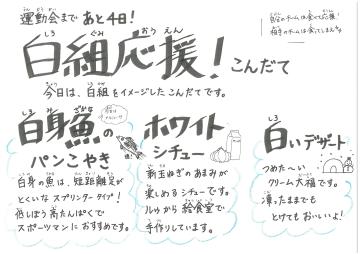 運動会まで あと4日!
自分のチームは食べて応援!
相手のチームは食べてしまえ
白組応援! こんだて
今日は、白組をイメージしたこんだてです。
白身魚の
パンこやき
白身の魚は、短距離走が
とくいなスプリンタータイプ!
低しぼう高たんぱくで
スポーツマンにおすすめです。
ホワイト
シチュー
新玉ねぎのあまみが
楽しめるシチューです。
ルゥから給食室で
手作りしています。
白いデザート
つめた〜い
クリーム大福です。
凍ったままでも
とけてもおいしいよ!